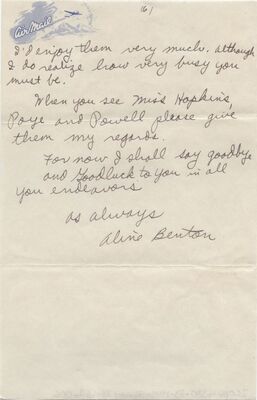 Air Mail
16)
I'd enjoy them very much. although
I do realize how very busy you
must be.
When you see Miss Hopkins,
Poye and Powell please give
them my regards.
For now I shall say goodbye
and Goodluck to you in all
you endeavors
as always
Aline Benton